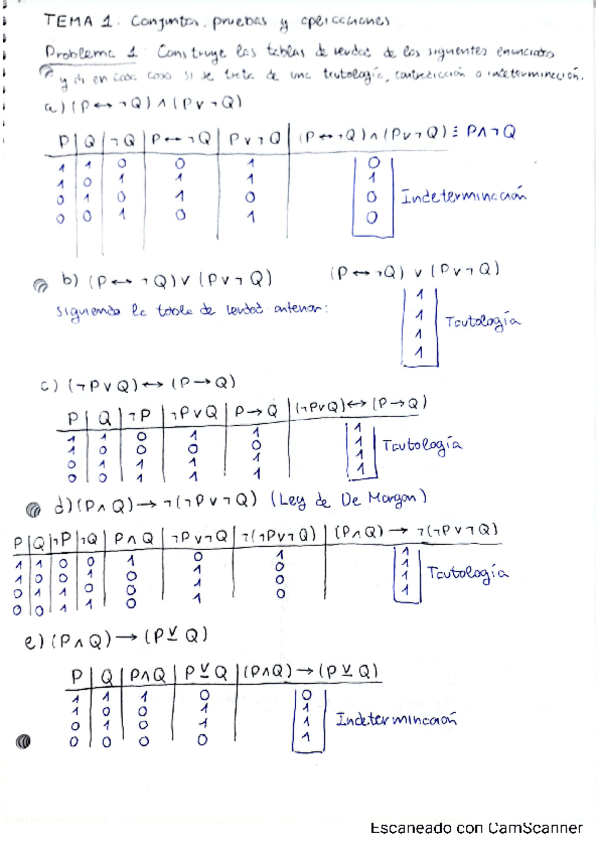 TEMA 1. Conjuntos, pruebas y aplicaciones
Problema 1: Construye las tablas de verdad de los siguientes enunciados
y di en cada caso si se trata de una tautología, contradicción o indeterminación.
a) (P ↔ ¬Q) ∧ (P ∨ ¬Q)
P | Q | ¬Q | P ↔ ¬Q | P ∨ ¬Q | (P ↔ ¬Q) ∧ (P ∨ ¬Q) ≡ P ∧ ¬Q
1 | 1 | 0 | 0 | 1 | 0
1 | 0 | 1 | 1 | 1 | 1
0 | 1 | 0 | 1 | 0 | 0 Indeterminación
0 | 0 | 1 | 0 | 1 | 0
b) (P ↔ ¬Q) ∨ (P ∨ ¬Q)
Siguiendo la tabla de verdad anterior:
(P ↔ ¬Q) ∨ (P ∨ ¬Q)
1
1
1 Tautología
1
c) (¬P ∨ Q) ↔ (P → Q)
P | Q | ¬P | ¬P ∨ Q | P → Q | (¬P ∨ Q) ↔ (P → Q)
1 | 1 | 0 | 1 | 1 | 1
1 | 0 | 0 | 0 | 0 | 1 Tautología
0 | 1 | 1 | 1 | 1 | 1
0 | 0 | 1 | 1 | 1 | 1
d) (P ∧ Q) → ¬(¬P ∨ ¬Q) (Ley de De Morgan)
P | Q | ¬P | ¬Q | P ∧ Q | ¬P ∨ ¬Q | ¬(¬P ∨ ¬Q) | (P ∧ Q) → ¬(¬P ∨ ¬Q)
1 | 1 | 0 | 0 | 1 | 0 | 1 | 1
1 | 0 | 0 | 1 | 0 | 1 | 0 | 1 Tautología
0 | 1 | 1 | 0 | 0 | 1 | 0 | 1
0 | 0 | 1 | 1 | 0 | 1 | 0 | 1
e) (P ∧ Q) → (P ⊻ Q)
P | Q | P ∧ Q | P ⊻ Q | (P ∧ Q) → (P ⊻ Q)
1 | 1 | 1 | 0 | 0
1 | 0 | 0 | 1 | 1 Indeterminación
0 | 1 | 0 | 1 | 1
0 | 0 | 0 | 0 | 1
Escaneado con CamScanner